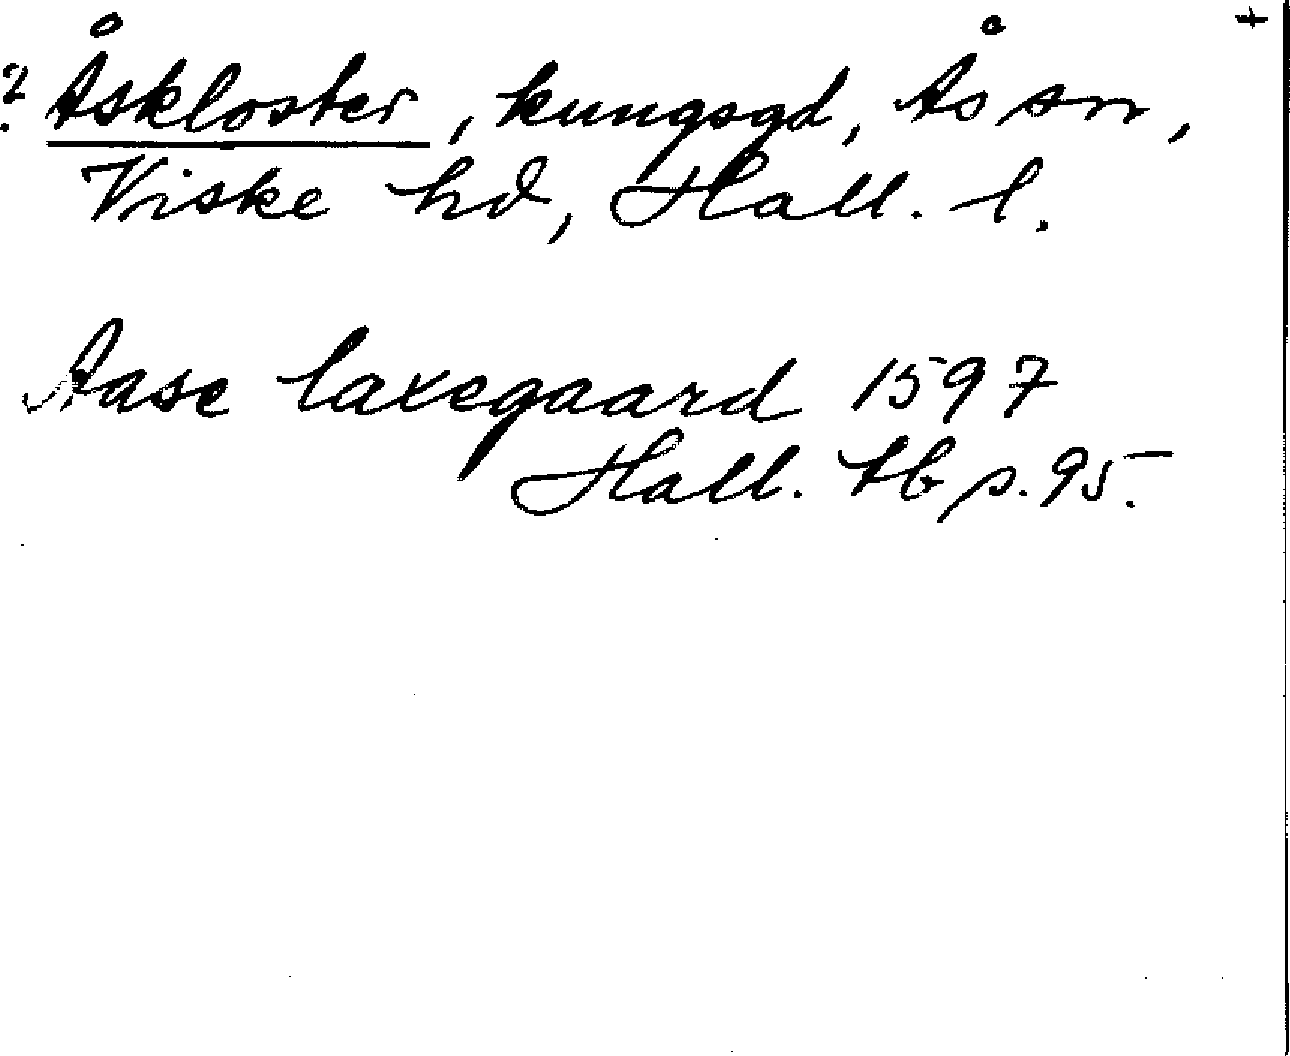 +
? Åskloster, kungsgd, Ås sn,
Viske hd, Hall. l.
Aase laxegaard 1597
Hall. tb p. 95.